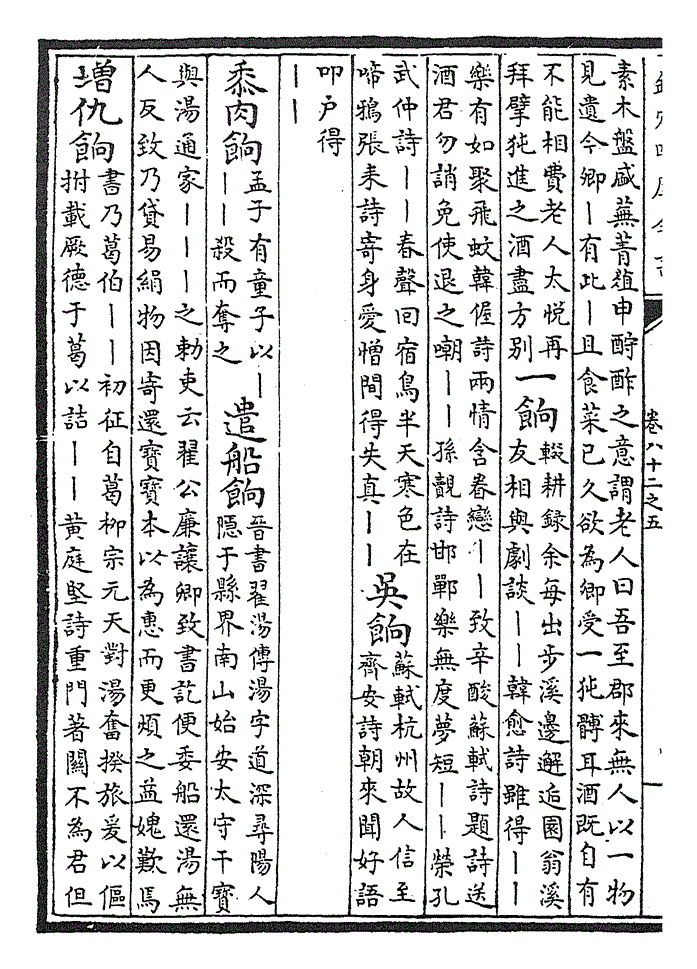 卷八十二之五
素木盤盛蕪菁葅申酧酢之意謂老人曰吾至郡來無人以一物
見遺今卿丨有此丨且食菜已久欲為卿受一㹠髆耳酒既自有
不能相費老人太悅再
拜擘㹠進之酒盡方別
一餉
輟耕録余每出步溪邊邂逅園翁溪
友相與劇談丨丨韓愈詩雖得丨丨
樂有如聚飛蚊韓偓詩兩情含眷戀丨丨致辛酸蘇軾詩題詩送
酒君勿誚免使退之嘲丨丨孫覿詩邯鄲樂無度夢短丨丨榮孔
武仲詩丨丨春聲回宿鳥半天寒色在
啼鴉張耒詩寄身愛憎間得失真丨丨
吳餉
蘇軾杭州故人信至
齊安詩朝來聞好語
叩户得
丨丨
黍肉餉
孟子有童子以丨
丨丨殺而奪之
遣船餉
晉書翟湯傳湯字道深尋陽人
隱于縣界南山始安太守干寶
與湯通家丨丨丨之勅吏云翟公廉讓卿致書訖便委船還湯無
人反致乃貸易絹物因寄還寶寶本以為惠而更煩之益媿歎焉
增仇餉
書乃葛伯丨丨初征自葛柳宗元天對湯奮揆旅爰以傴
拊載厥德于葛以詰丨丨黄庭堅詩重門著關不為君但